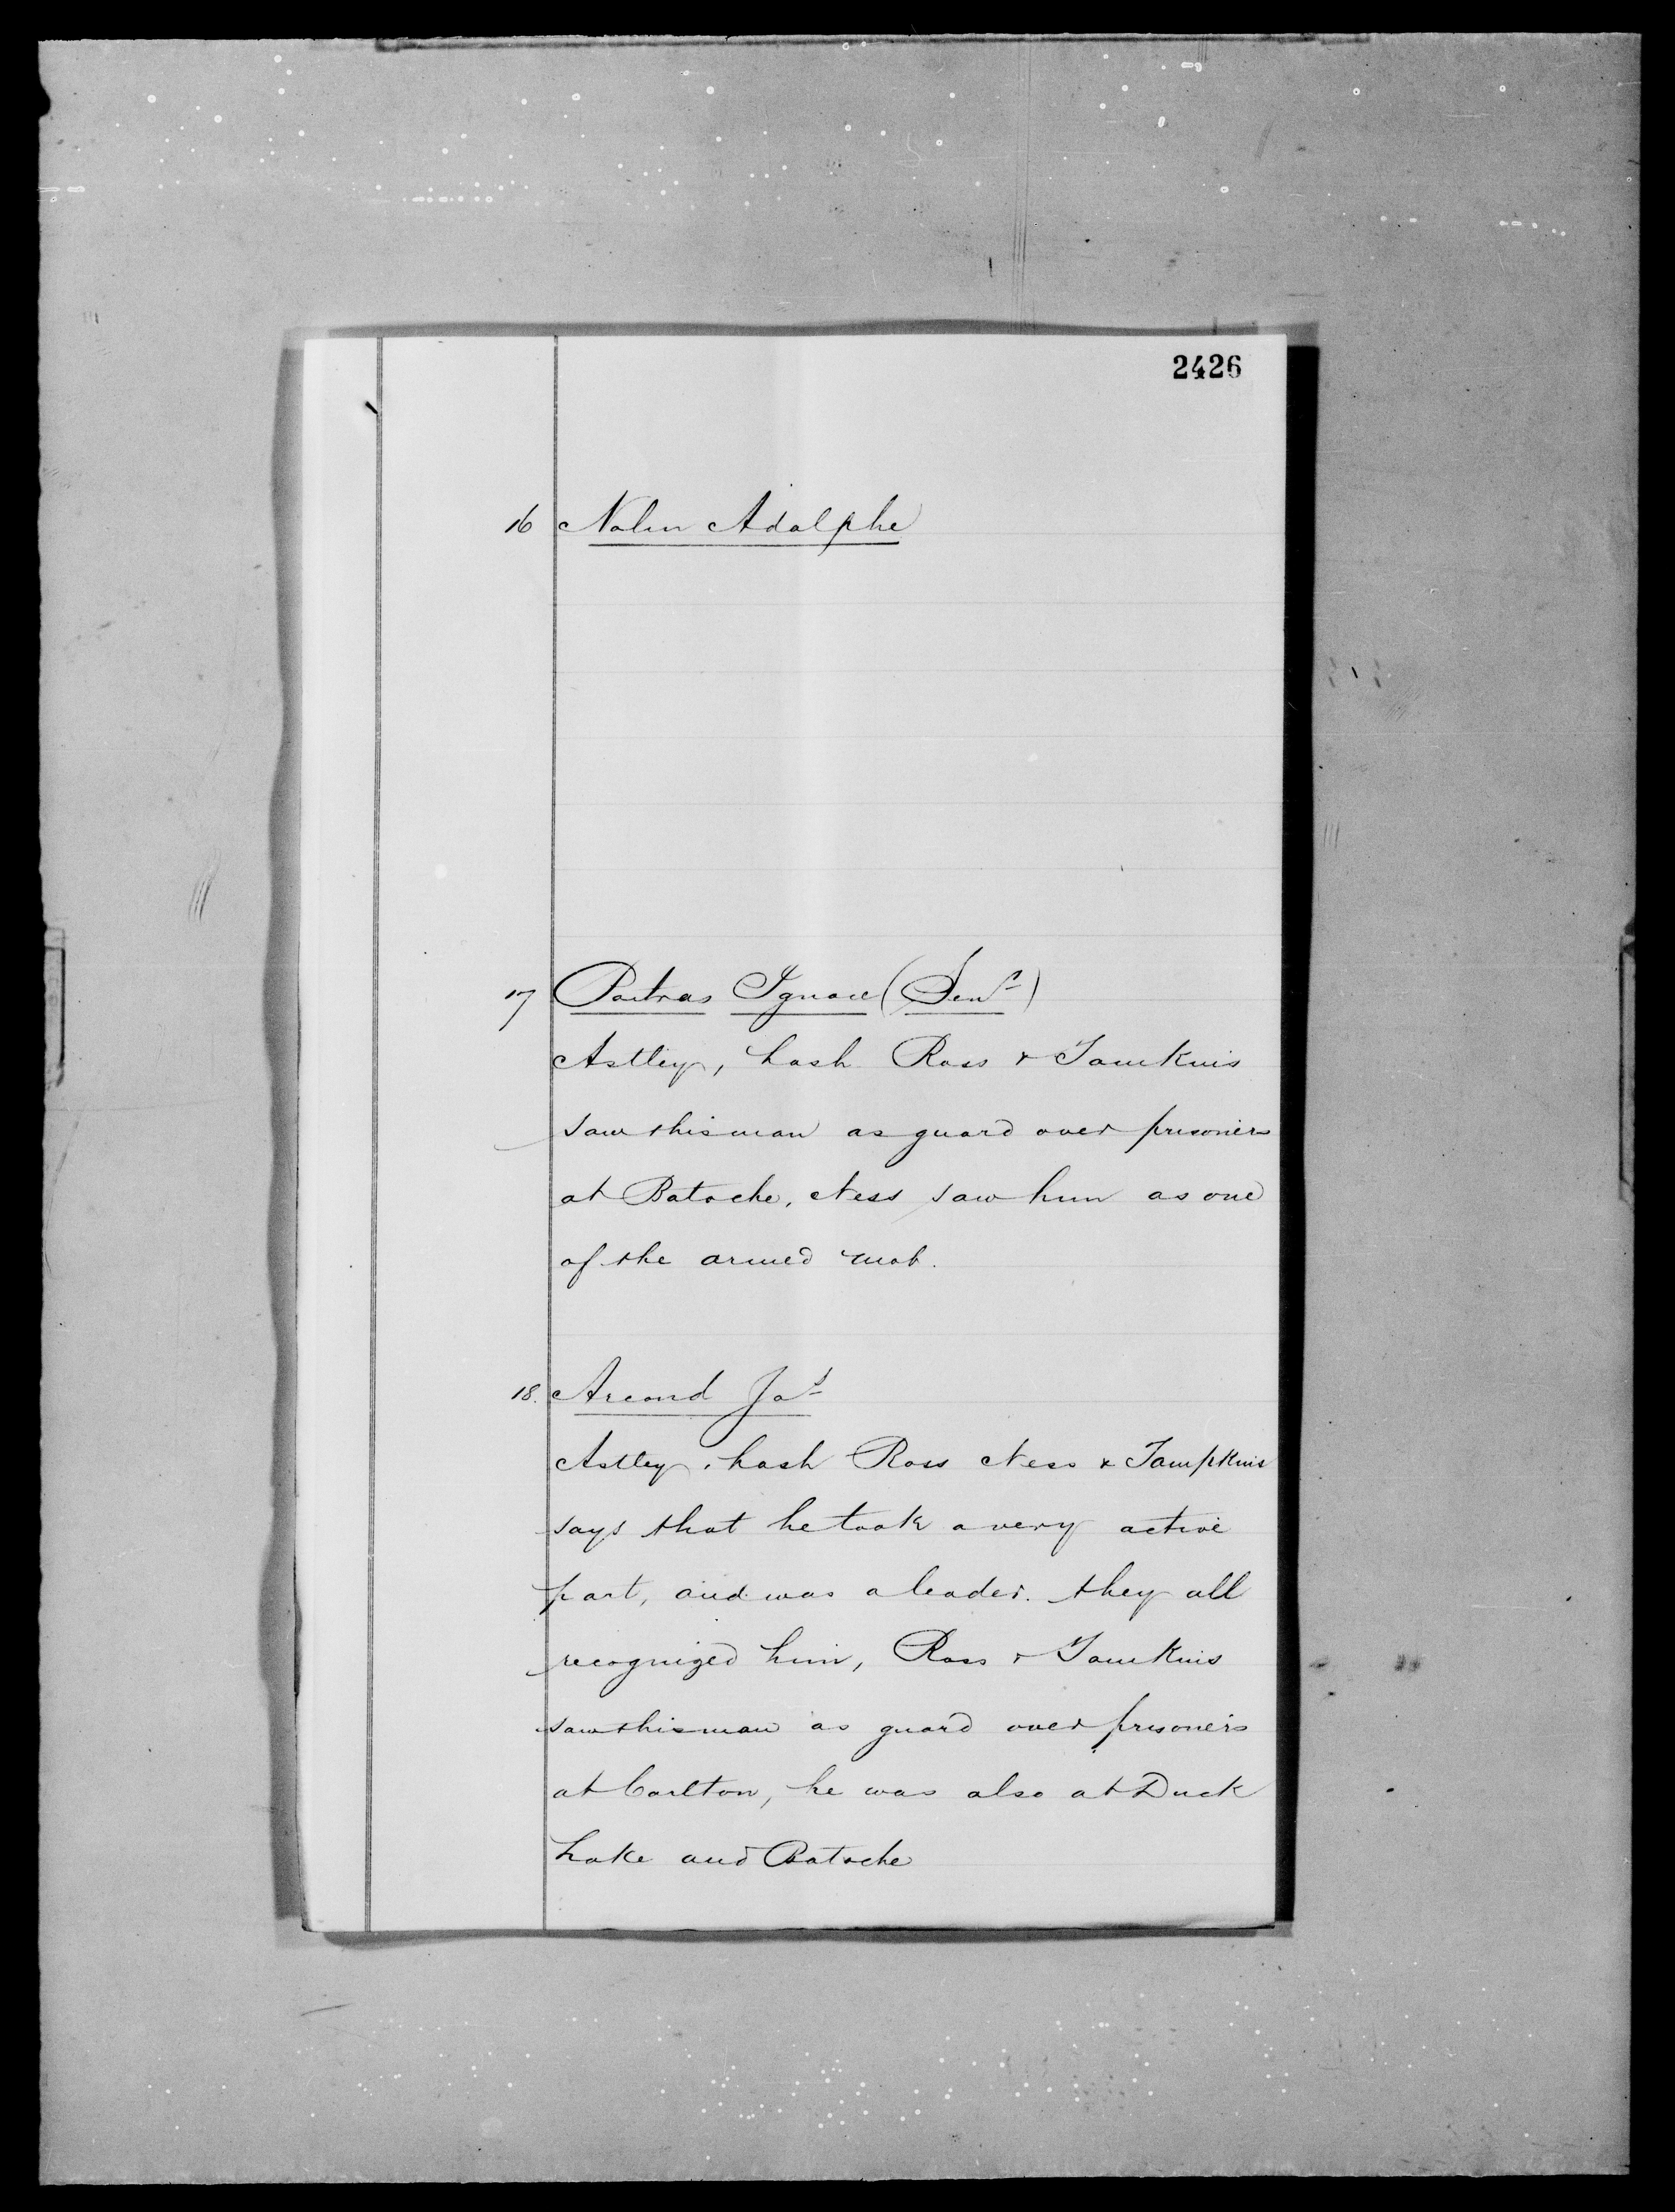 2426
16 Nolin Adolphe
17 Poitras Ignace (Senr)
Astley, Lash Ross & Tomkins
saw this man as guard over prisoners
at Batoche, Ness saw him as one
of the armed mob.
18. Arcand Jas
Astley, Lash Ross Ness & Tompkins
says that he took a very active
part, and was a leader. they all
recognized him, Ross & Tomkins
saw this man as guard over prisoners
at Carlton, he was also at Duck
Lake and Batoche